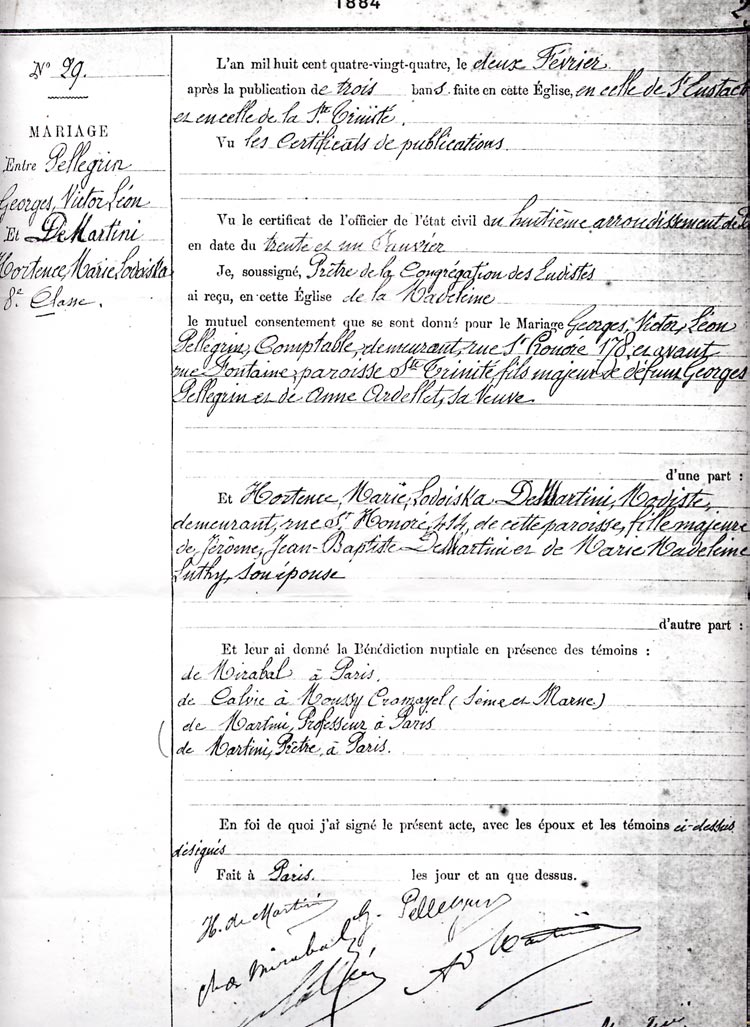 1884
2
N° 29.
MARIAGE
Entre Pellegrin
Georges, Victor Léon
Et DeMartini
Hortence, Marie, Lodoiska
8e Classe.
L'an mil huit cent quatre-vingt-quatre, le deux Février
après la publication de trois bans faite en cette Église, en celle de St Eustache
et en celle de la Ste Trinité.
Vu les Certificats de publications.
Vu le certificat de l'officier de l'état civil du huitième arrondissement de
en date du trente et un Janvier
Je, soussigné, Prêtre de la Congrégation des Eudistes
ai reçu, en cette Église de la Madeleine
le mutuel consentement que se sont donné pour le Mariage Georges, Victor, Léon
Pellegrin, Comptable, demeurant, rue St Honoré 178, et avant
rue Fontaine, paroisse Ste Trinité, fils majeur de défunt Georges
Pellegrin et de Anne Ardellet, sa Veuve.
d'une part :
Et Hortence, Marie, Lodoiska DeMartini, Modiste,
demeurant, rue St Honoré, 414, de cette paroisse, fille majeure
de Jérôme, Jean-Baptiste DeMartini et de Marie Madeleine
Luthy, son épouse
d'autre part :
Et leur ai donné la Bénédiction nuptiale en présence des témoins :
de Mirabal à Paris.
de Calvie à Moussy Cramayel (Seine et Marne)
de Martini, Professeur à Paris
de Martini, Prêtre, à Paris.
En foi de quoi j'ai signé le présent acte, avec les époux et les témoins ci-dessus
désignés
Fait à Paris. les jour et an que dessus.
H. de Martini
G. Pellegrin
Mirabal
Martini